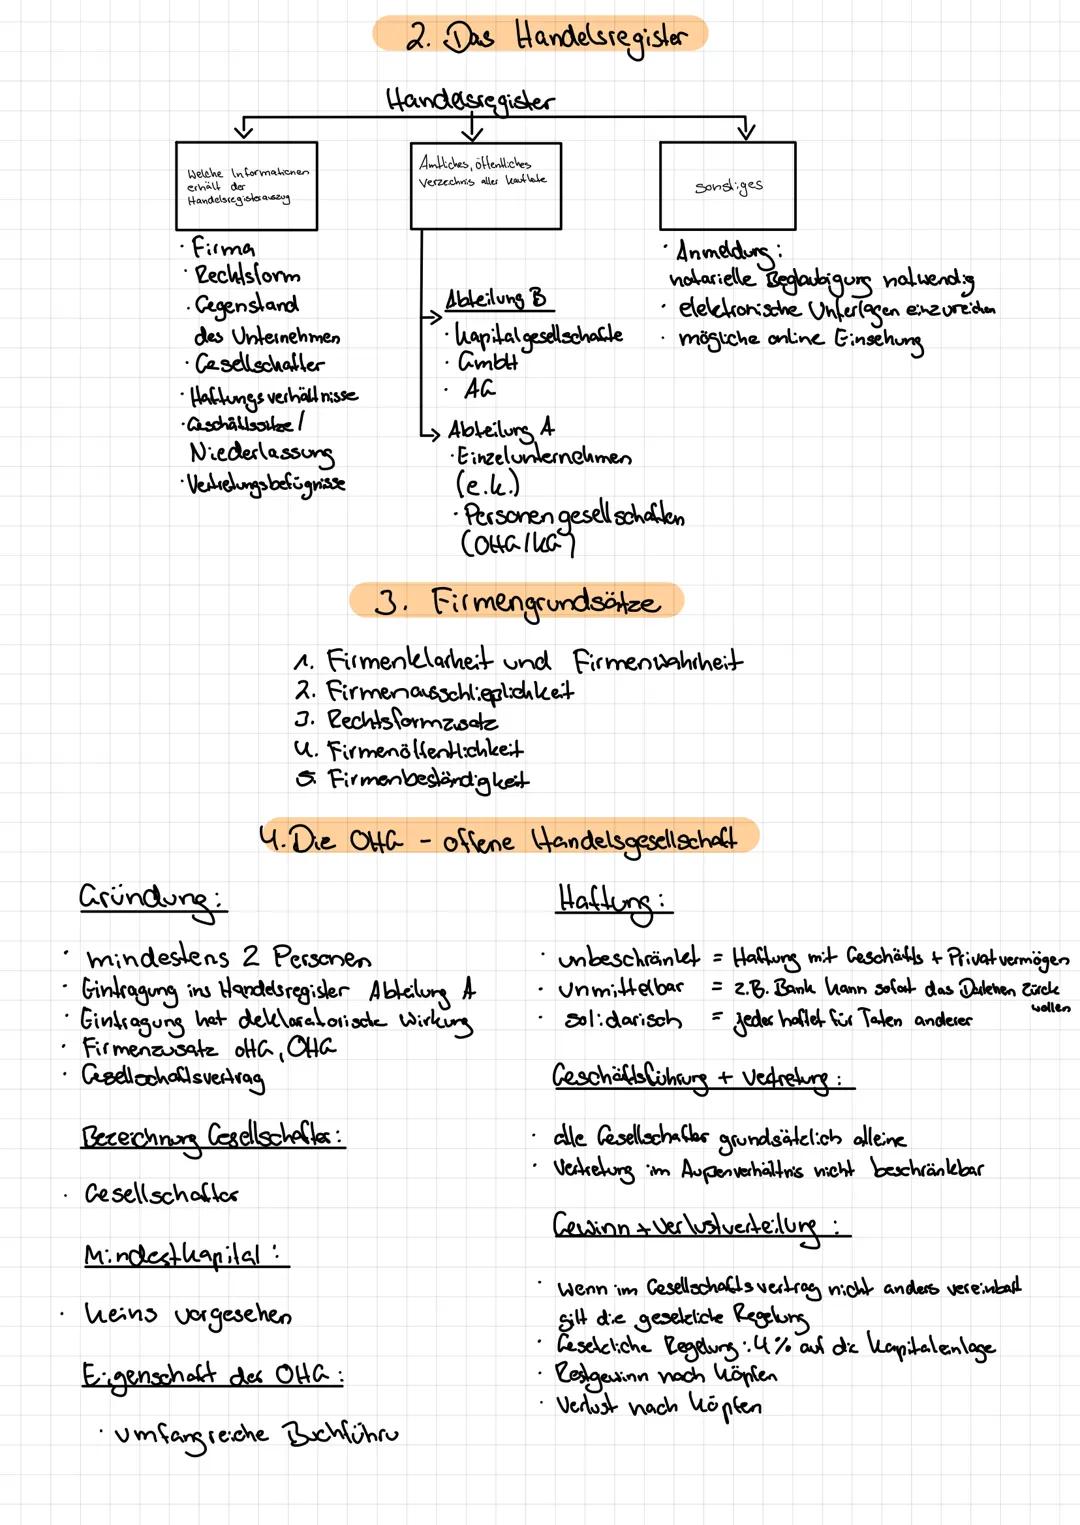 2. Das Handelsregister
Handelsregister
Welche Informationen
erhält der
Handelsregisterauszug
· Firma
· Rechtsform
· Gegenstand
des Unternehmen
· Gesellschafter
· Haftungsverhältnisse
· Geschäftssitze /
Niederlassung
· Vertretungsbefügnisse
Amtliches, öffentliches
Verzeichnis aller Kaufleute
Abteilung B
· Kapitalgesellschafte
· GmbH
· AG
Abteilung A
· Einzelunternehmen
(e.k.)
· Personengesellschaften
(OHG/KG)
sonstiges
· Anmeldung:
notarielle Beglaubigung notwendig
· elektronische Unterlagen einzureichen
· mögliche online Einsehung
3. Firmengrundsätze
1. Firmenklarheit und Firmenwahrheit
2. Firmenausschließlichkeit
3. Rechtsformzusatz
4. Firmenöffentlichkeit
5. Firmenbeständigkeit
4. Die OHG - offene Handelsgesellschaft
Gründung:
· mindestens 2 Personen
· Eintragung ins Handelsregister Abteilung A
· Eintragung hat deklaratorische Wirkung
· Firmenzusatz oHG, OHG
· Gesellschaftsvertrag
Bezeichnung Gesellschafter:
· Gesellschafter
Mindestkapital:
· keins vorgesehen
Eigenschaft der OHG:
· umfangreiche Buchführu
Haftung:
· unbeschränkt = Haftung mit Geschäfts + Privatvermögen
· unmittelbar = z.B. Bank kann sofort das Darlehen zurück
wollen
· solidarisch = jeder haftet für Taten anderer
Geschäftsführung + Vertretung:
· alle Gesellschafter grundsätzlich alleine
· Vertretung im Außenverhältnis nicht beschränkbar
Gewinn + Verlustverteilung:
· wenn im Gesellschaftsvertrag nicht anders vereinbart
gilt die gesetzliche Regelung
· Gesetzliche Regelung: 4% auf die Kapitaleinlage
· Restgewinn nach Köpfen
· Verlust nach Köpfen